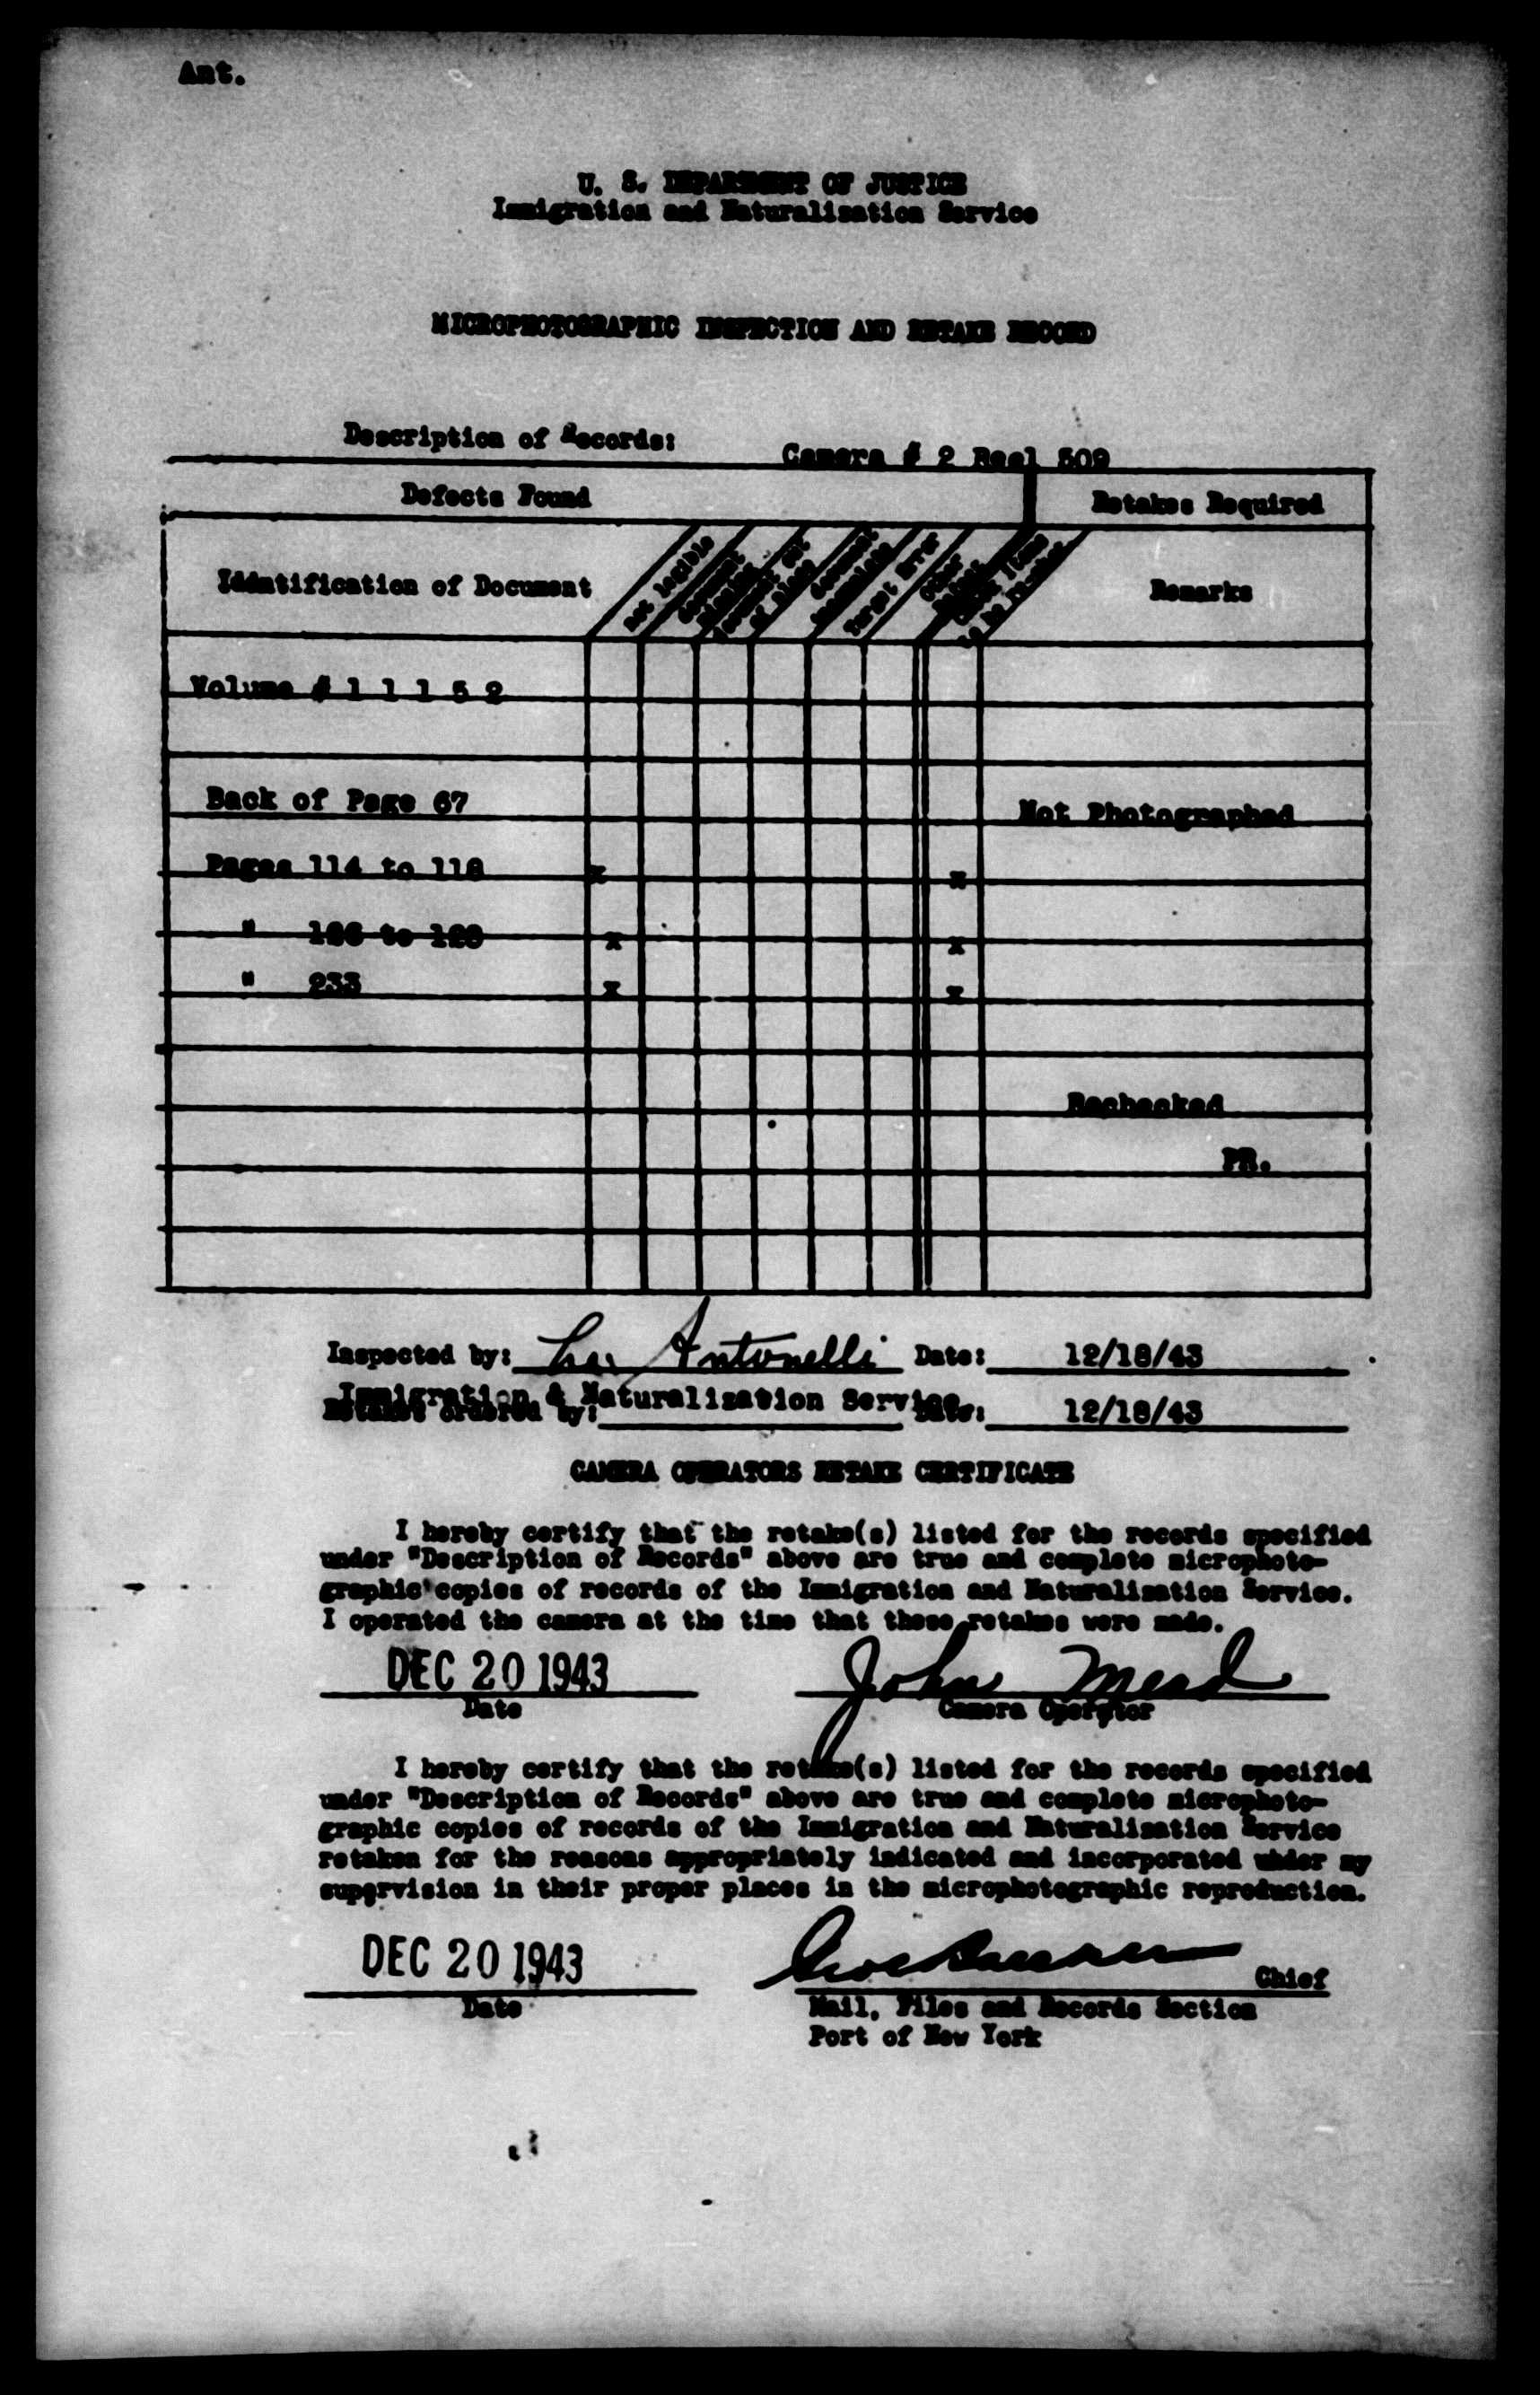 Ant.
U. S. DEPARTMENT OF JUSTICE
Immigration and Naturalization Service
MICROPHOTOGRAPHIC INSPECTION AND RETAKE RECORD
Description of Records:
Camera # 2 Reel 509
Defects Found
Retakes Required
Identification of Document
Not legible
Remarks
Volume # 1 1 1 5 2
Back of Page 67
Not Photographed
Pages 114 to 118 x x
" to x x
" 233 x x
Rechecked
PR.
Inspected by: Antonelli Date: 12/18/43
Immigration & Naturalization Service
Retakes ordered by: Date: 12/18/43
CAMERA OPERATORS RETAKE CERTIFICATE
I hereby certify that the retake(s) listed for the records specified
under "Description of Records" above are true and complete microphoto-
graphic copies of records of the Immigration and Naturalization Service.
I operated the camera at the time that these retakes were made.
DEC 20 1943 John Mead
Date Camera Operator
I hereby certify that the retake(s) listed for the records specified
under "Description of Records" above are true and complete microphoto-
graphic copies of records of the Immigration and Naturalization Service
retaken for the reasons appropriately indicated and incorporated under my
supervision in their proper places in the microphotographic reproduction.
DEC 20 1943 Chief
Date Mail, Files and Records Section
Port of New York